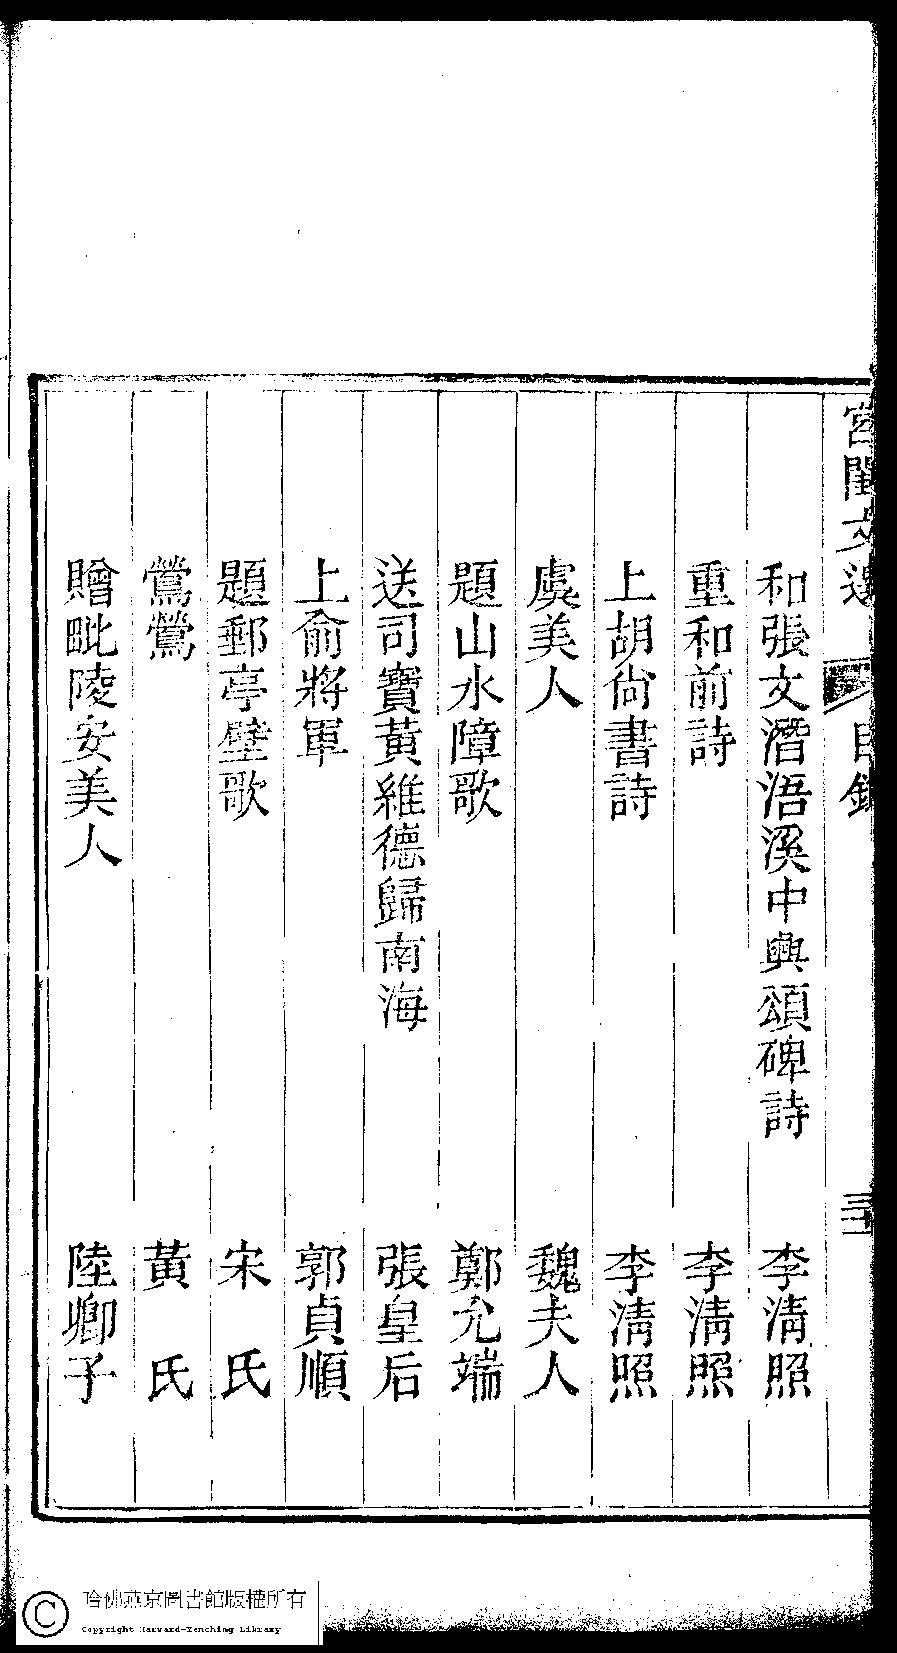 宮閨文選 目錄 三十
和張文潛浯溪中興頌碑詩 李清照
重和前詩 李清照
上胡尚書詩 李清照
虞美人 魏夫人
題山水障歌 鄭允端
送司寶黃維德歸南海 張皇后
上俞將軍 郭貞順
題郵亭壁歌 宋氏
鶯鶯 黃氏
贈毗陵安美人 陸卿子
哈佛燕京圖書館版權所有
Copyright Harvard-Yenching Library